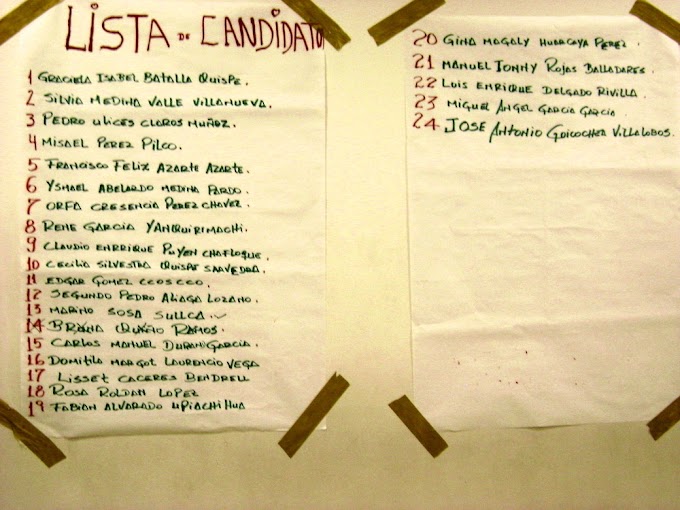 LISTA DE CANDIDATO
1 GRACIELA ISABEL BATALLA QUISPE.
2 SILVIA MEDINA VALLE VILLANUEVA.
3 PEDRO ULICES CLAROS MUÑOZ.
4 MISAEL PEREZ PILCO.
5 FRANCISCO FELIX AZARTE AZARTE.
6 YSMAEL ABELARDO MEDINA PARDO.
7 ORFA CRESENCIA PEREZ CHAVEZ.
8 RENE GARCIA YANQUIRIMACHI.
9 CLAUDIO ENRRIQUE PUYEN CHAFLOQUE.
10 CECILIA SILVESTRA QUISPE SAAVEDRA.
11 EDGAR GOMEZ CCOSCCO.
12 SEGUNDO PEDRO ALIAGA LOZANO.
13 MARINO SOSA SULLCA.
14 RAMOS.
15 CARLOS MANUEL DURAN GARCIA.
16 DOMITILA MARGOT LAURENCIO VEGA
17 LISSET CACERES BENDRELL
18 ROSA ROLDAN LOPEZ
19 FABIAN ALVARADO UPIACHIHUA
20 GINA MAGALY HUARCAYA PEREZ.
21 MANUEL JONNY ROJAS BALLADARES.
22 LUIS ENRIQUE DELGADO RIVILLA.
23 MIGUEL ANGEL GARCIA GARCIA
24 JOSE ANTONIO GOICOCHEA VILLALOBOS.